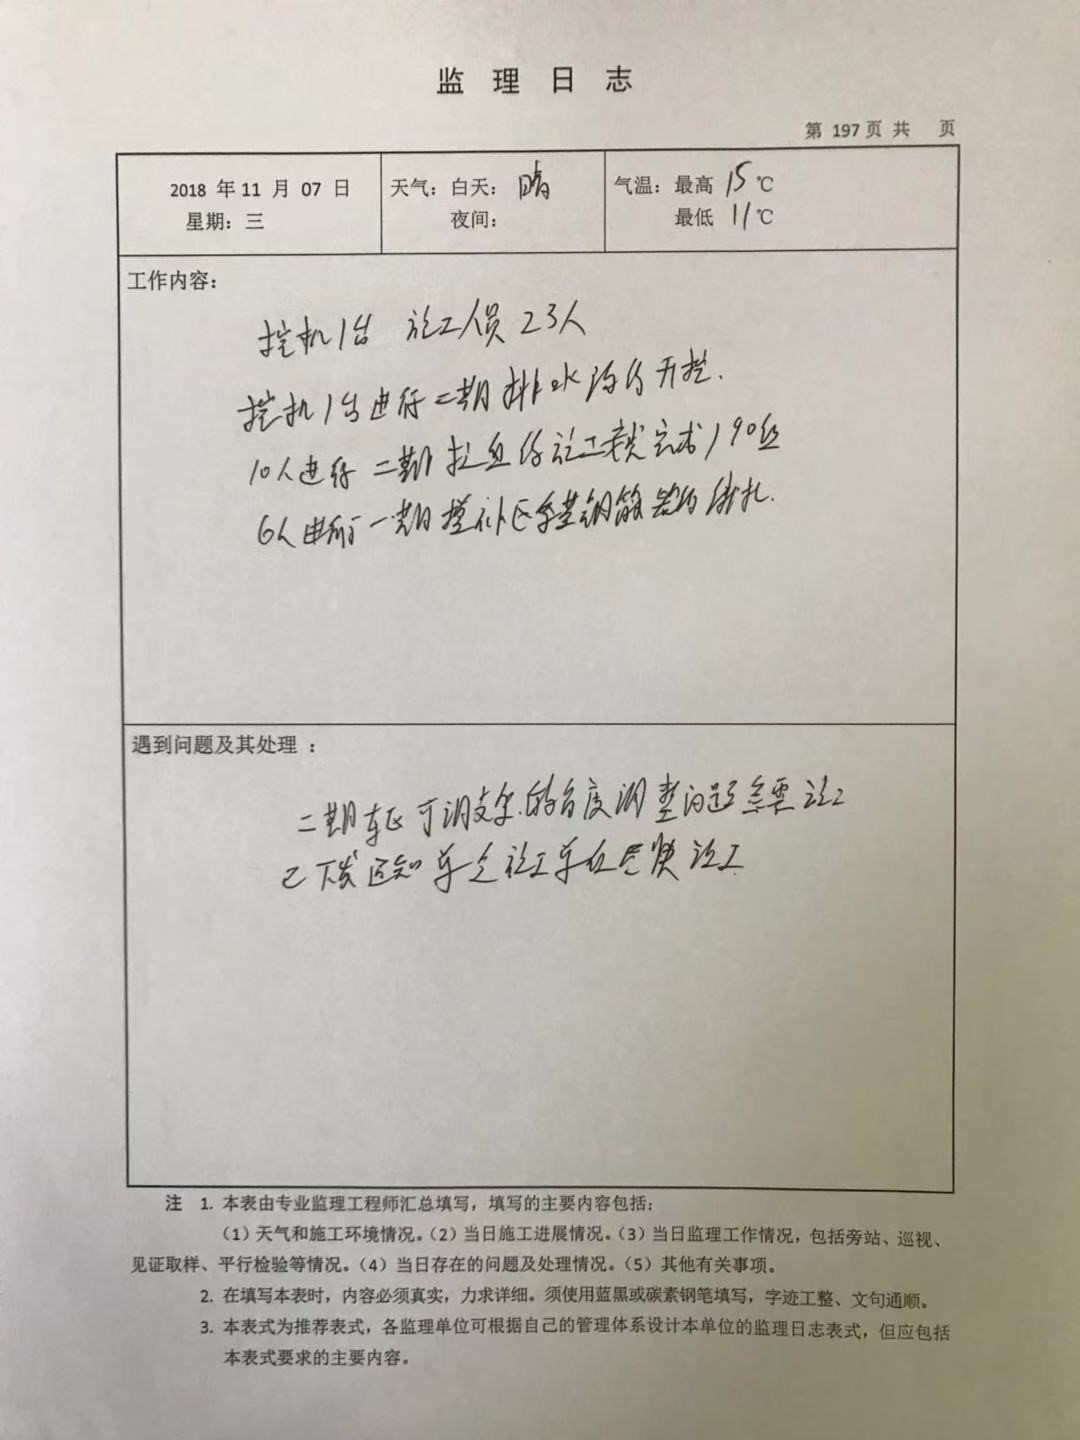 监 理 日 志
第 197 页 共 页
2018 年 11 月 07 日
星期：三
天气：白天：晴
夜间：
气温：最高 15 ℃
最低 11 ℃
工作内容：
挖机1台 施工人员23人
挖机1台进行二期排水沟的开挖.
10人进行二期拉的施工完成190
6人进行一期基钢筋的绑扎.
遇到问题及其处理 ：
二期可调支的角度调整问题
已下发通知单令施工单位尽快施工
注 1. 本表由专业监理工程师汇总填写，填写的主要内容包括：
（1）天气和施工环境情况。（2）当日施工进展情况。（3）当日监理工作情况，包括旁站、巡视、
见证取样、平行检验等情况。（4）当日存在的问题及处理情况。（5）其他有关事项。
2. 在填写本表时，内容必须真实，力求详细。须使用蓝黑或碳素钢笔填写，字迹工整、文句通顺。
3. 本表式为推荐表式，各监理单位可根据自己的管理体系设计本单位的监理日志表式，但应包括
本表式要求的主要内容。